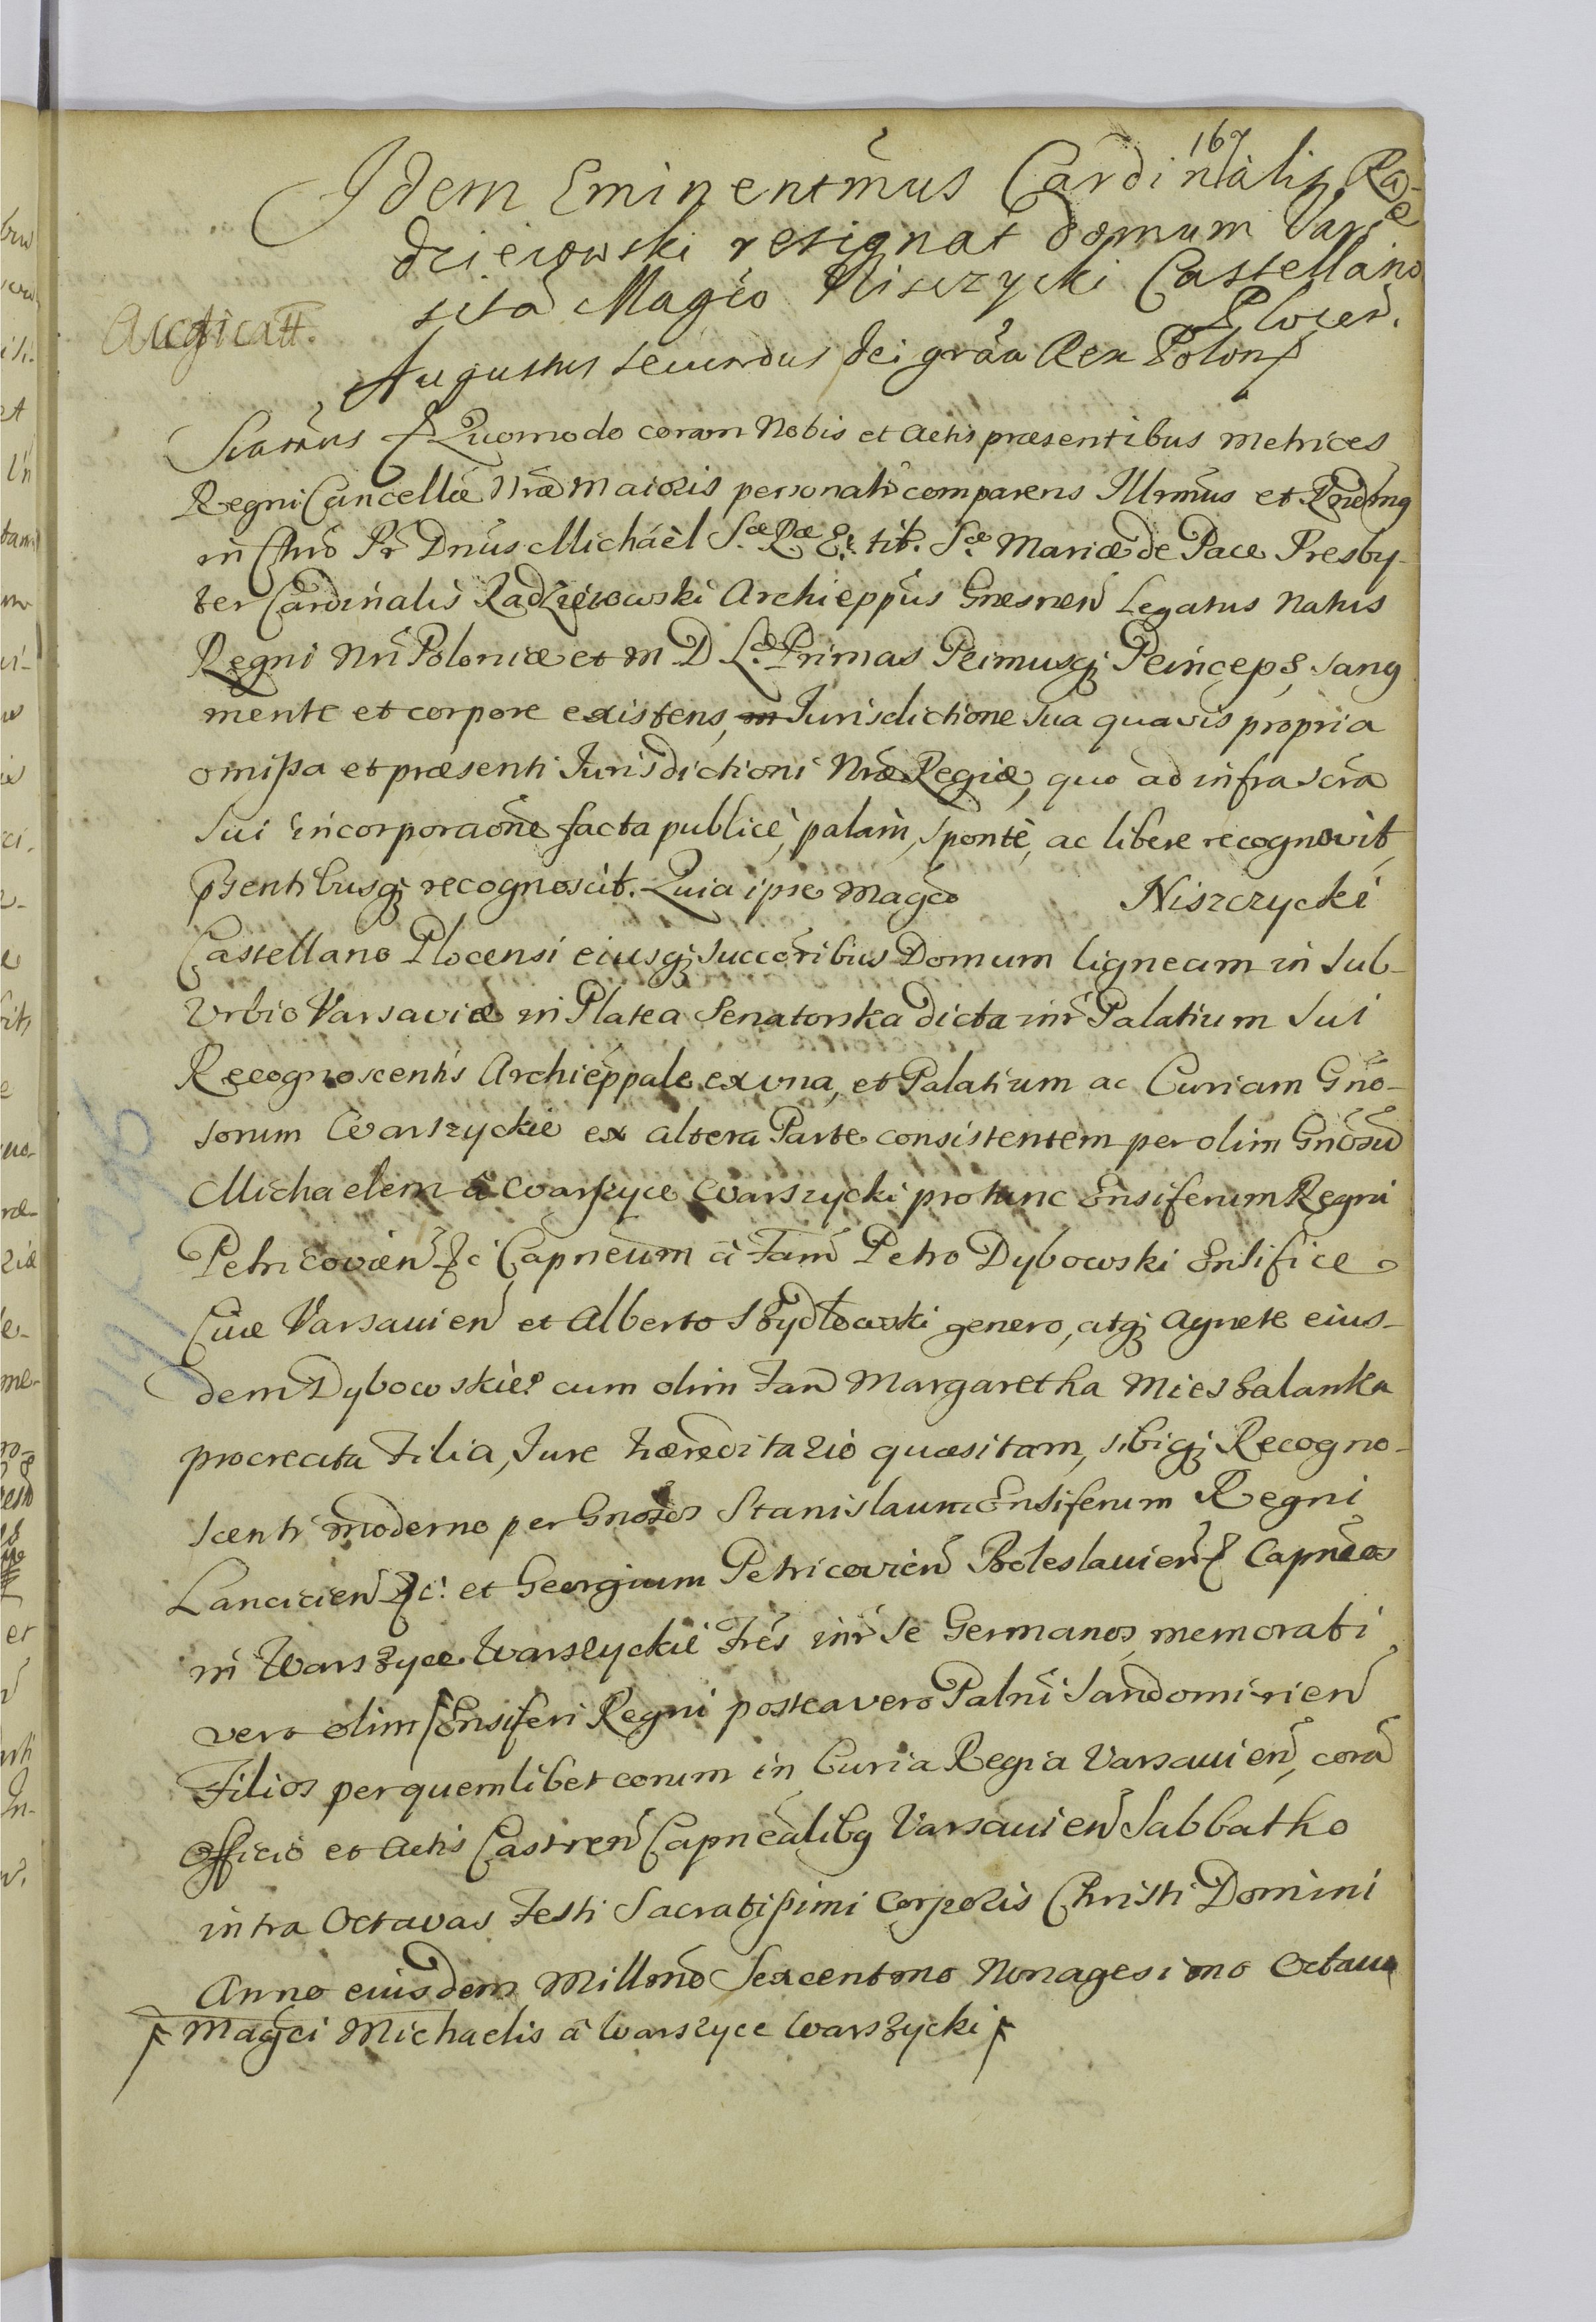 167
Idem Eminentmus Cardinalis Ra-
dziejowski resignat domum Varse
sita Magco Niszczycki Castellano
Plocen.
Augustus secundus Dei gràa Rex Polon
Scatmus Quomodo coram Nobis et Actis præsentibus Metrices
Regni Cancellæ Nræ Maioris personalr comparens Illrmus et Rndmg
in Chro Pr Dnus Michäel Sæ Ræ E. tit. Sæ Mariæ de Pace Presby-
ter Cardinalis Radziejowski Archieppus Gnesnen Legatus Natus
Regni Nri Poloniæ et M. D. L. Primas Primusq Princeps, sang
mente et corpore existens, in Jurisdictione sua quavis propria
omissa et præsenti Jurisdictioni Nræ Regiæ, quo ad infra scra
sui incorporaone facta publice, palam, sponte, ac libere recognovit,
psentibusq recognoscit. Quia ipse Magco Niszczycki
Castellano Plocensi eiusq succoribus Domum ligneam in sub-
urbio Varsaviæ in Platea Senatorska dicta intr Palatium sui
Recognoscentis Archieppale ex una, et Palatium ac Curiam Gno-
sorum Warszyckie ex altera Parte consistentem per olim Gnosu
Michaelem a Warszyce Warszycki pro tunc Ensiferum Regni
Petricovien &c Capneum a Fam Petro Dybowski Ensifice
Cive Varsavien et Alberto Szydlowski genero, atq Agnete eius-
dem Dybowskie cum olim Fam Margaretha Mieszalanka
procreata Filia, Jure hæreditario quæsitam, sibiq Recogno-
scenti moderno per Gnosos Stanislaum Ensiferum Regni
Lancicien &c. et Georgium Petricovien Boleslavien Capneos
in Warszyce Warszyckie Frès intr se Germanos, memorati
vero olim Ensiferi Regni postea vero Palni Sandomirien
Filios per quemlibet eorum in Curia Regia Varsavien, cora
Officio et Actis Castren Capnealibg Varsavien Sabbatho
intra Octavas Festi Sacratissimi Corporis Christi Domini
Anno eiusdem Millmo Sexcentmo Nonagesimo Octavo
Magci Michaelis a Warszyce Warszycki